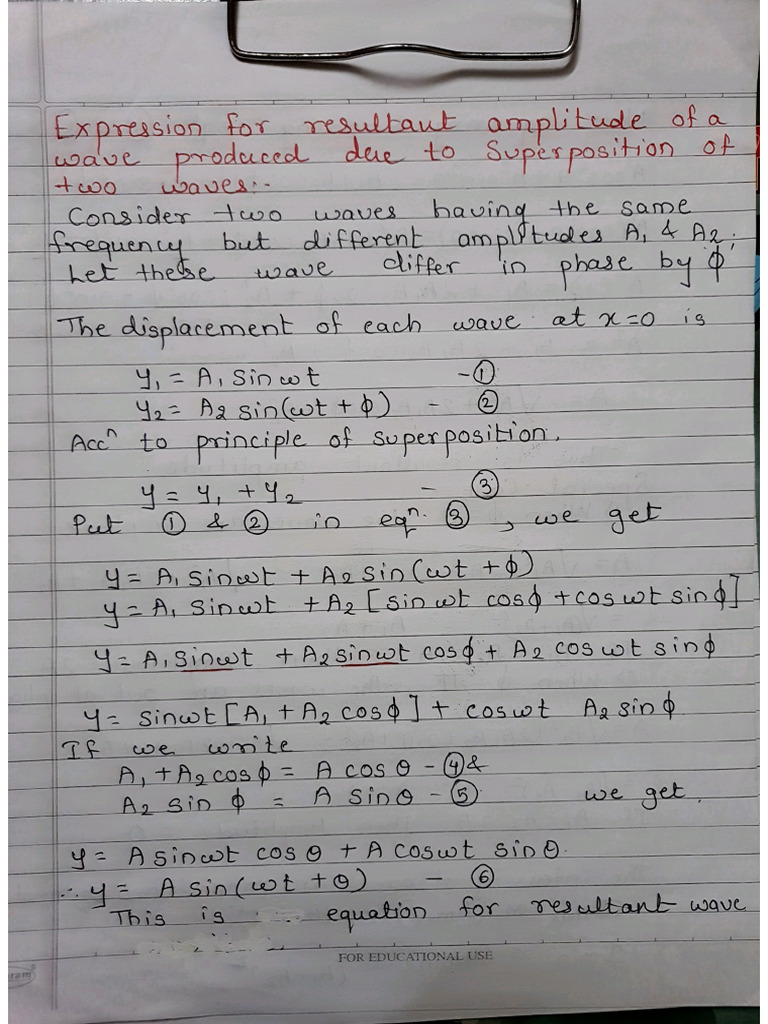 Expression for resultant amplitude of a
wave produced due to Superposition of
two waves:-
Consider two waves having the same
frequency but different amplitudes A₁ & A₂.
Let these wave differ in phase by ϕ'
The displacement of each wave at x=0 is
y₁ = A₁ sin ωt -①
y₂ = A₂ sin(ωt + ϕ) - ②
Accⁿ to principle of superposition.
y = y₁ + y₂ - ③
Put ① & ② in eqⁿ. ③, we get
y = A₁ sinωt + A₂ sin(ωt + ϕ)
y = A₁ sinωt + A₂ [sin ωt cosϕ + cos ωt sinϕ]
y = A₁ sinωt + A₂ sinωt cosϕ + A₂ cosωt sinϕ
y = sinωt [A₁ + A₂ cosϕ] + cosωt A₂ sinϕ
If we write
A₁ + A₂ cosϕ = A cos θ - ④ &
A₂ sin ϕ = A sinθ - ⑤ we get.
y = A sinωt cos θ + A cosωt sin θ.
∴ y = A sin(ωt + θ) - ⑥
This is equation for resultant wave
FOR EDUCATIONAL USE